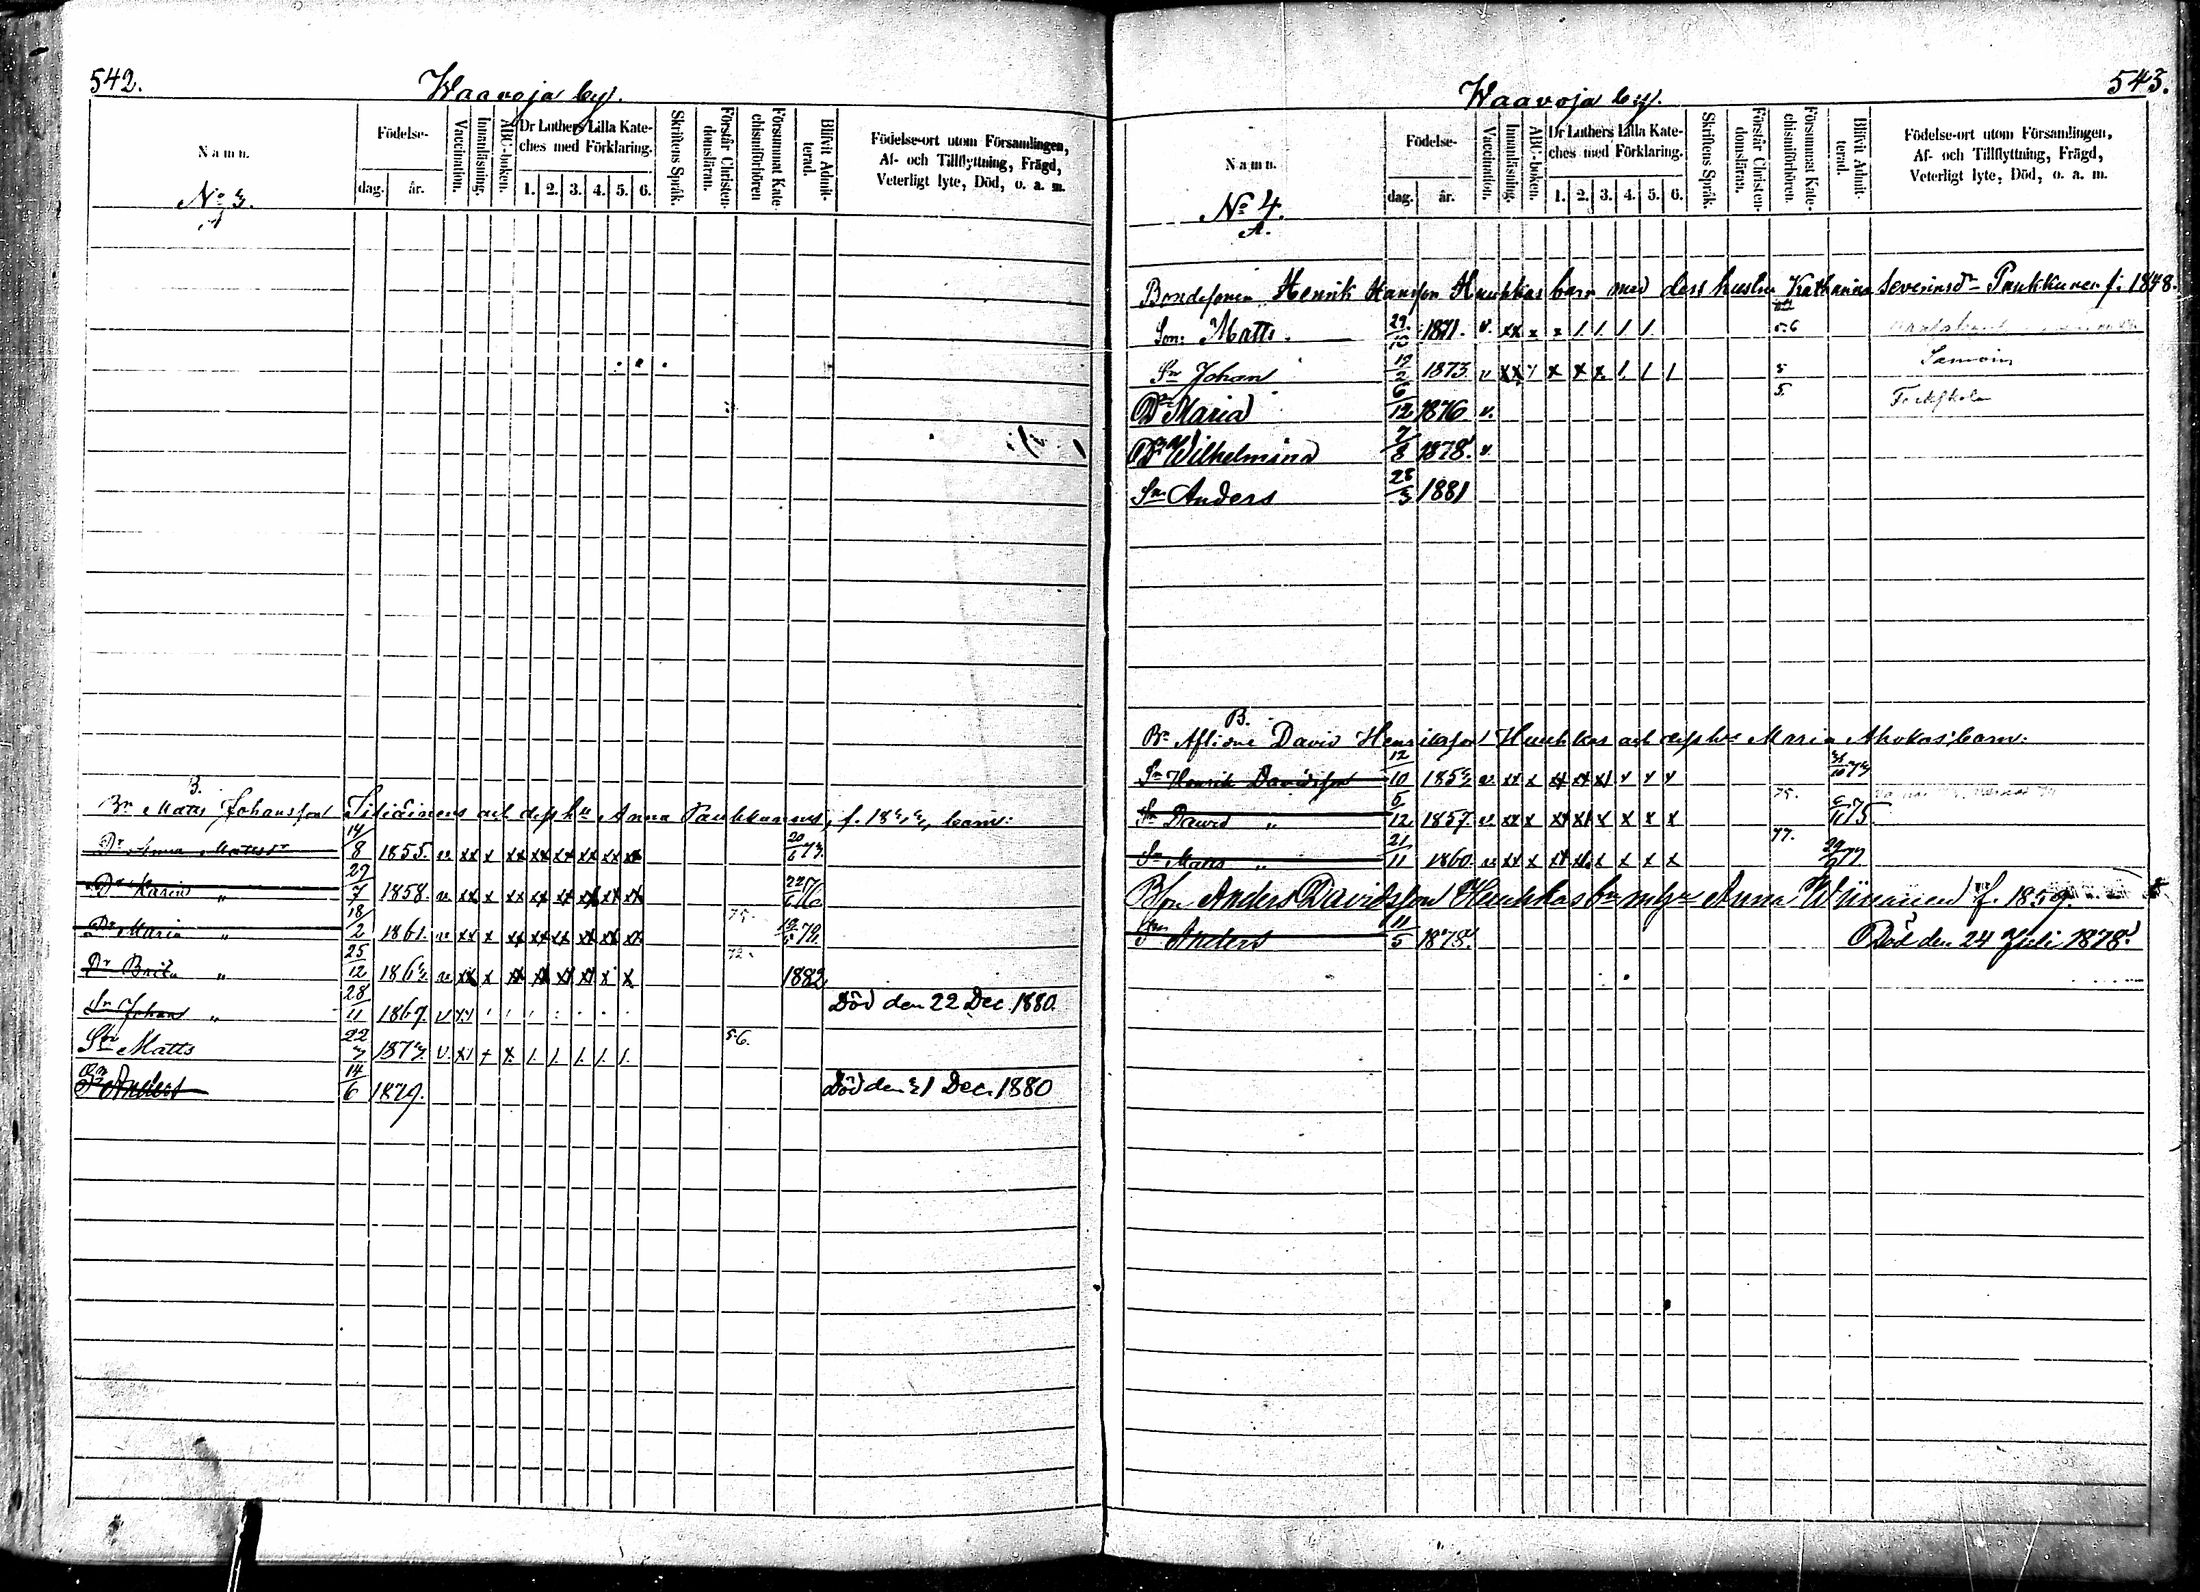 542.
Waavoja by.
Namn.
Födelse-
dag.
år.
Vaccination.
Innanläsning.
ABC-boken.
Dr Luthers Lilla Kate-
ches med Förklaring.
1. 2. 3. 4. 5. 6.
Skriftens Språk.
Förstår Christen-
domsläran.
Försummat Kate-
chismiförhören
Blifvit Admit-
terad.
Födelse-ort utom Församlingen,
Af- och Tillflyttning, Frägd,
Veterligt lyte, Död, o. a. m.
No 3.
A
B.
Bn Matts Johansson och dess hu Anna Paukkunens, f. 1833, barn:
Dr Anna Mattsdr 14/8 1855. v xx x xx xx xx xx xx xx 20/6 73.
Dr Karin " 27/7 1858. v xx x xx xx xx xx xx xx 22/6 76
Dr Maria " 18/2 1861. v xx x xx xx xx xx xx xx 75.
Dr Brita " 25/12 1863. v xx x xx xx xx xx x x 72. 1882
Sn Johan " 28/11 1867. Död den 22 Dec. 1880.
Son Matts 22/3 1873. v. x 1. 1. 1. 1. 1. 56.
Sn Anders 14/6 1879. Död den 31 Dec. 1880
543.
Waavoja by.
Namn.
Födelse-
dag.
år.
Vaccination.
Innanläsning.
ABC-boken.
Dr Luthers Lilla Kate-
ches med Förklaring.
1. 2. 3. 4. 5. 6.
Skriftens Språk.
Förstår Christen-
domsläran.
Försummat Kate-
chismiförhören.
Blifvit Admit-
terad.
Födelse-ort utom Församlingen,
Af- och Tillflyttning, Frägd,
Veterligt lyte, Död, o. a. m.
No 4.
A.
Bondesonen Henrik Hansson Huuhkas barn med dess hustru Katharina Severinsdr Paukkunen f. 1848.
Son: Matts. 29/10 1871. v. xx x x 1. 1. 1. 1. 56
Sn Johan 1873. v xx x x x 1. 1. 1 5
Dr Maria 6/12 1876 v. 5.
Dr Wilhelmina 7/8 1878. v
Sn Anders 28/3 1881
B.
Bn Aflidne David Henriksson Huuhkas och dess hu Maria Ahokas barn:
Sn Henrik Davidsson 12/10 1853 v. xx x xx xx xx v v v 73
Sn David " 5/12 1857. v. xx x xx xx x x x x 75. 75.
Sn Matts " 21/11 1860. v. xx x xx xx x x x x 77. 77
Bson Anders Davidsson Huuhkas bn m hu Anna Wiinanen f. 1859.
Son Anders 11/5 1878. Död den 24 Juli 1878.